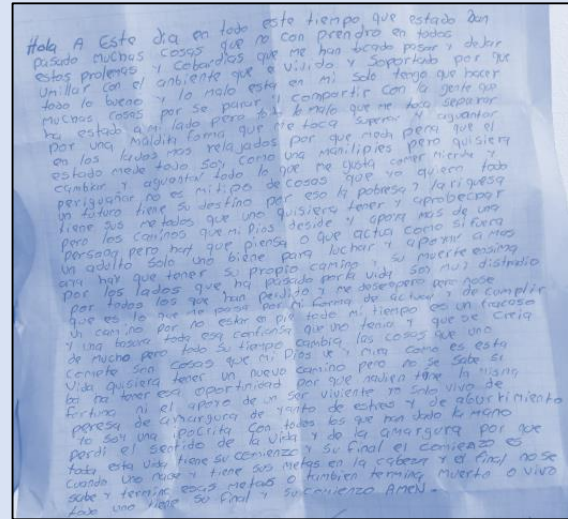 Hola A Este dia en todo este tiempo que estado Dan
pasado muchas cosas que no con prendro en todos
estos prolemas y Cobardias que me han tocado pasar y dejar
umillar con el anbiente que e vivido y Soportado por que
todo lo bueno y lo malo esta en mi solo tengo que hacer
muchas cosas por se parar y compartir con la gente que
ha estado a mi lado pero todo lo malo que me toca separar
por una maldita forma que me toca superar y aguantar
en los lados mas relajados por que meda pena que el
estado mede todo soy como una manilipies pero quisiera
cambiar y aguantar todo lo que me gusta comer mierda y
periguañar no es mi tipo de cosas que yo quiero todo
un futuro tiene su destino por eso la pobresa y la riquesa
tiene sus metodos que uno quisiera tener y aprobechar
pero los caminos que mi Dios deside y apoya mas de una
persona pero hay que piensa o que actua como si fuera
un adolto solo uno biene para luchar y apoyar a mas
ara hay que tener su propio camino y su muerte ensima
por los lados que ha pasado por la vida soy muy distradio
por todos los que han perdido y me desespero pero nose
que es lo que me pasa por mi forma de actuar y de cumplir
un camino por no estar o pie todo mi tiempo es un fracaso
y una basura toda esa confiansa que uno tenia y que se creia
de mucho pero todo su tiempo cambia las cosas que uno
comete son cosas que mi Dios ve y mira como es esta
vida quisiera tener un nuevo camino pero no se sabe si
ba ha tener esa oportnidad por que nadien tiene la misma
fortuna ni el apoyo de un ser viviente yo solo vivo de
peresa de amargura de yanto de estres y de aburrimiento
yo soy una ipocrita con todos los que han dado la mano
perdi el sentido de la vida y de la amargura por que
toda esta vida tiene su comienzo y su final el comienzo es
cuando uno nase y tiene sus metas en la cabeza y el final nose
sabe y termina esas metas o tambien termina muerto o vivo
todo uno tiene su final y su comienzo AMEN.